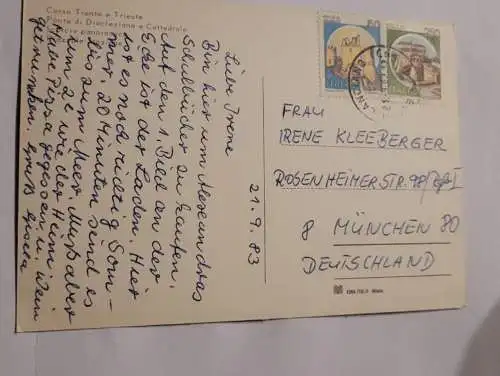 Corso Trento e Trieste
Ponte di Diocleziano e Cattedrale
21.9.83
Liebe Irene
Bin hier um Alexandras
Schulbücher zu kaufen.
Auf den 1. Bild an der
Ecke ist der Laden. Hier
ist es noch richtig Som-
mer. 20 Minuten sind es
bis zum Meer. Muß aber
um 2e wieder Heim.
Habe Pizza gegessen u. Wein
getrunken. Gruß
FRAU
IRENE KLEEBERGER
ROSENHEIMERSTR. 98
8 MÜNCHEN 80
DEUTSCHLAND